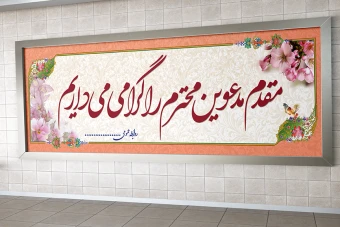 مقدم مدعوین محترم را گرامی می داریم
روابط عمومی ..................